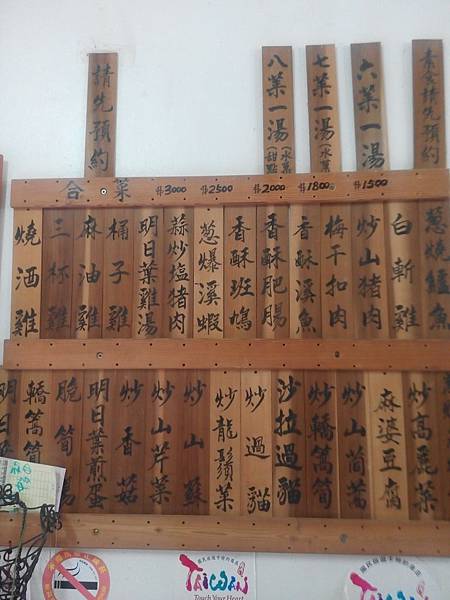 素食請先預約
六菜一湯
七菜一湯(水菓
八菜一湯(水菓
(甜點
請先預約
合菜 $3000 $2500 $2000 $1800 $1500
蔥燒鱸魚
白斬雞
炒山猪肉
梅干扣肉
香酥溪魚
香酥肥腸
香酥班鳩
蔥爆溪蝦
蒜炒塩猪肉
明日葉雞湯
桶子雞
麻油雞
三杯雞
燒酒雞
炒高麗菜
麻婆豆腐
炒山茼蒿
炒轎篙筍
沙拉過貓
炒過貓
炒龍鬚菜
炒山蘇
炒山芹菜
炒香菇
明日葉煎蛋
脆筍
轎篙筍
明日葉
TAIWAN
Touch Your Heart